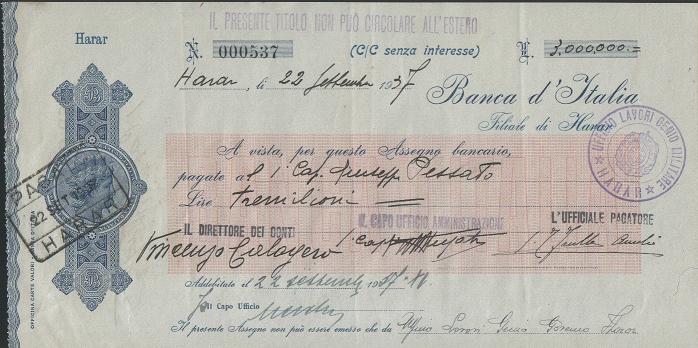 IL PRESENTE TITOLO NON PUÒ CIRCOLARE ALL'ESTERO
Harar
N. 000537 (C/C senza interesse) L. 3.000.000.=
Harar, li 22 Settembre 1937
Banca d'Italia
Filiale di Harar
UFFICIO LAVORI GENIO MILITARE
★ HARAR ★
A vista, per questo Assegno bancario,
pagate al 1° Cap. Giuseppe Pessato
Lire tremilioni
IL DIRETTORE DEI CONTI IL CAPO UFFICIO AMMINISTRAZIONE L'UFFICIALE PAGATORE
Vincenzo Calogero
HARAR
Addebitato el 22 settembre 1937
Il Capo Ufficio
Il presente Assegno non può essere emesso che da Ufficio Lavori Genio Harar
OFFICINA CARTE VALORI